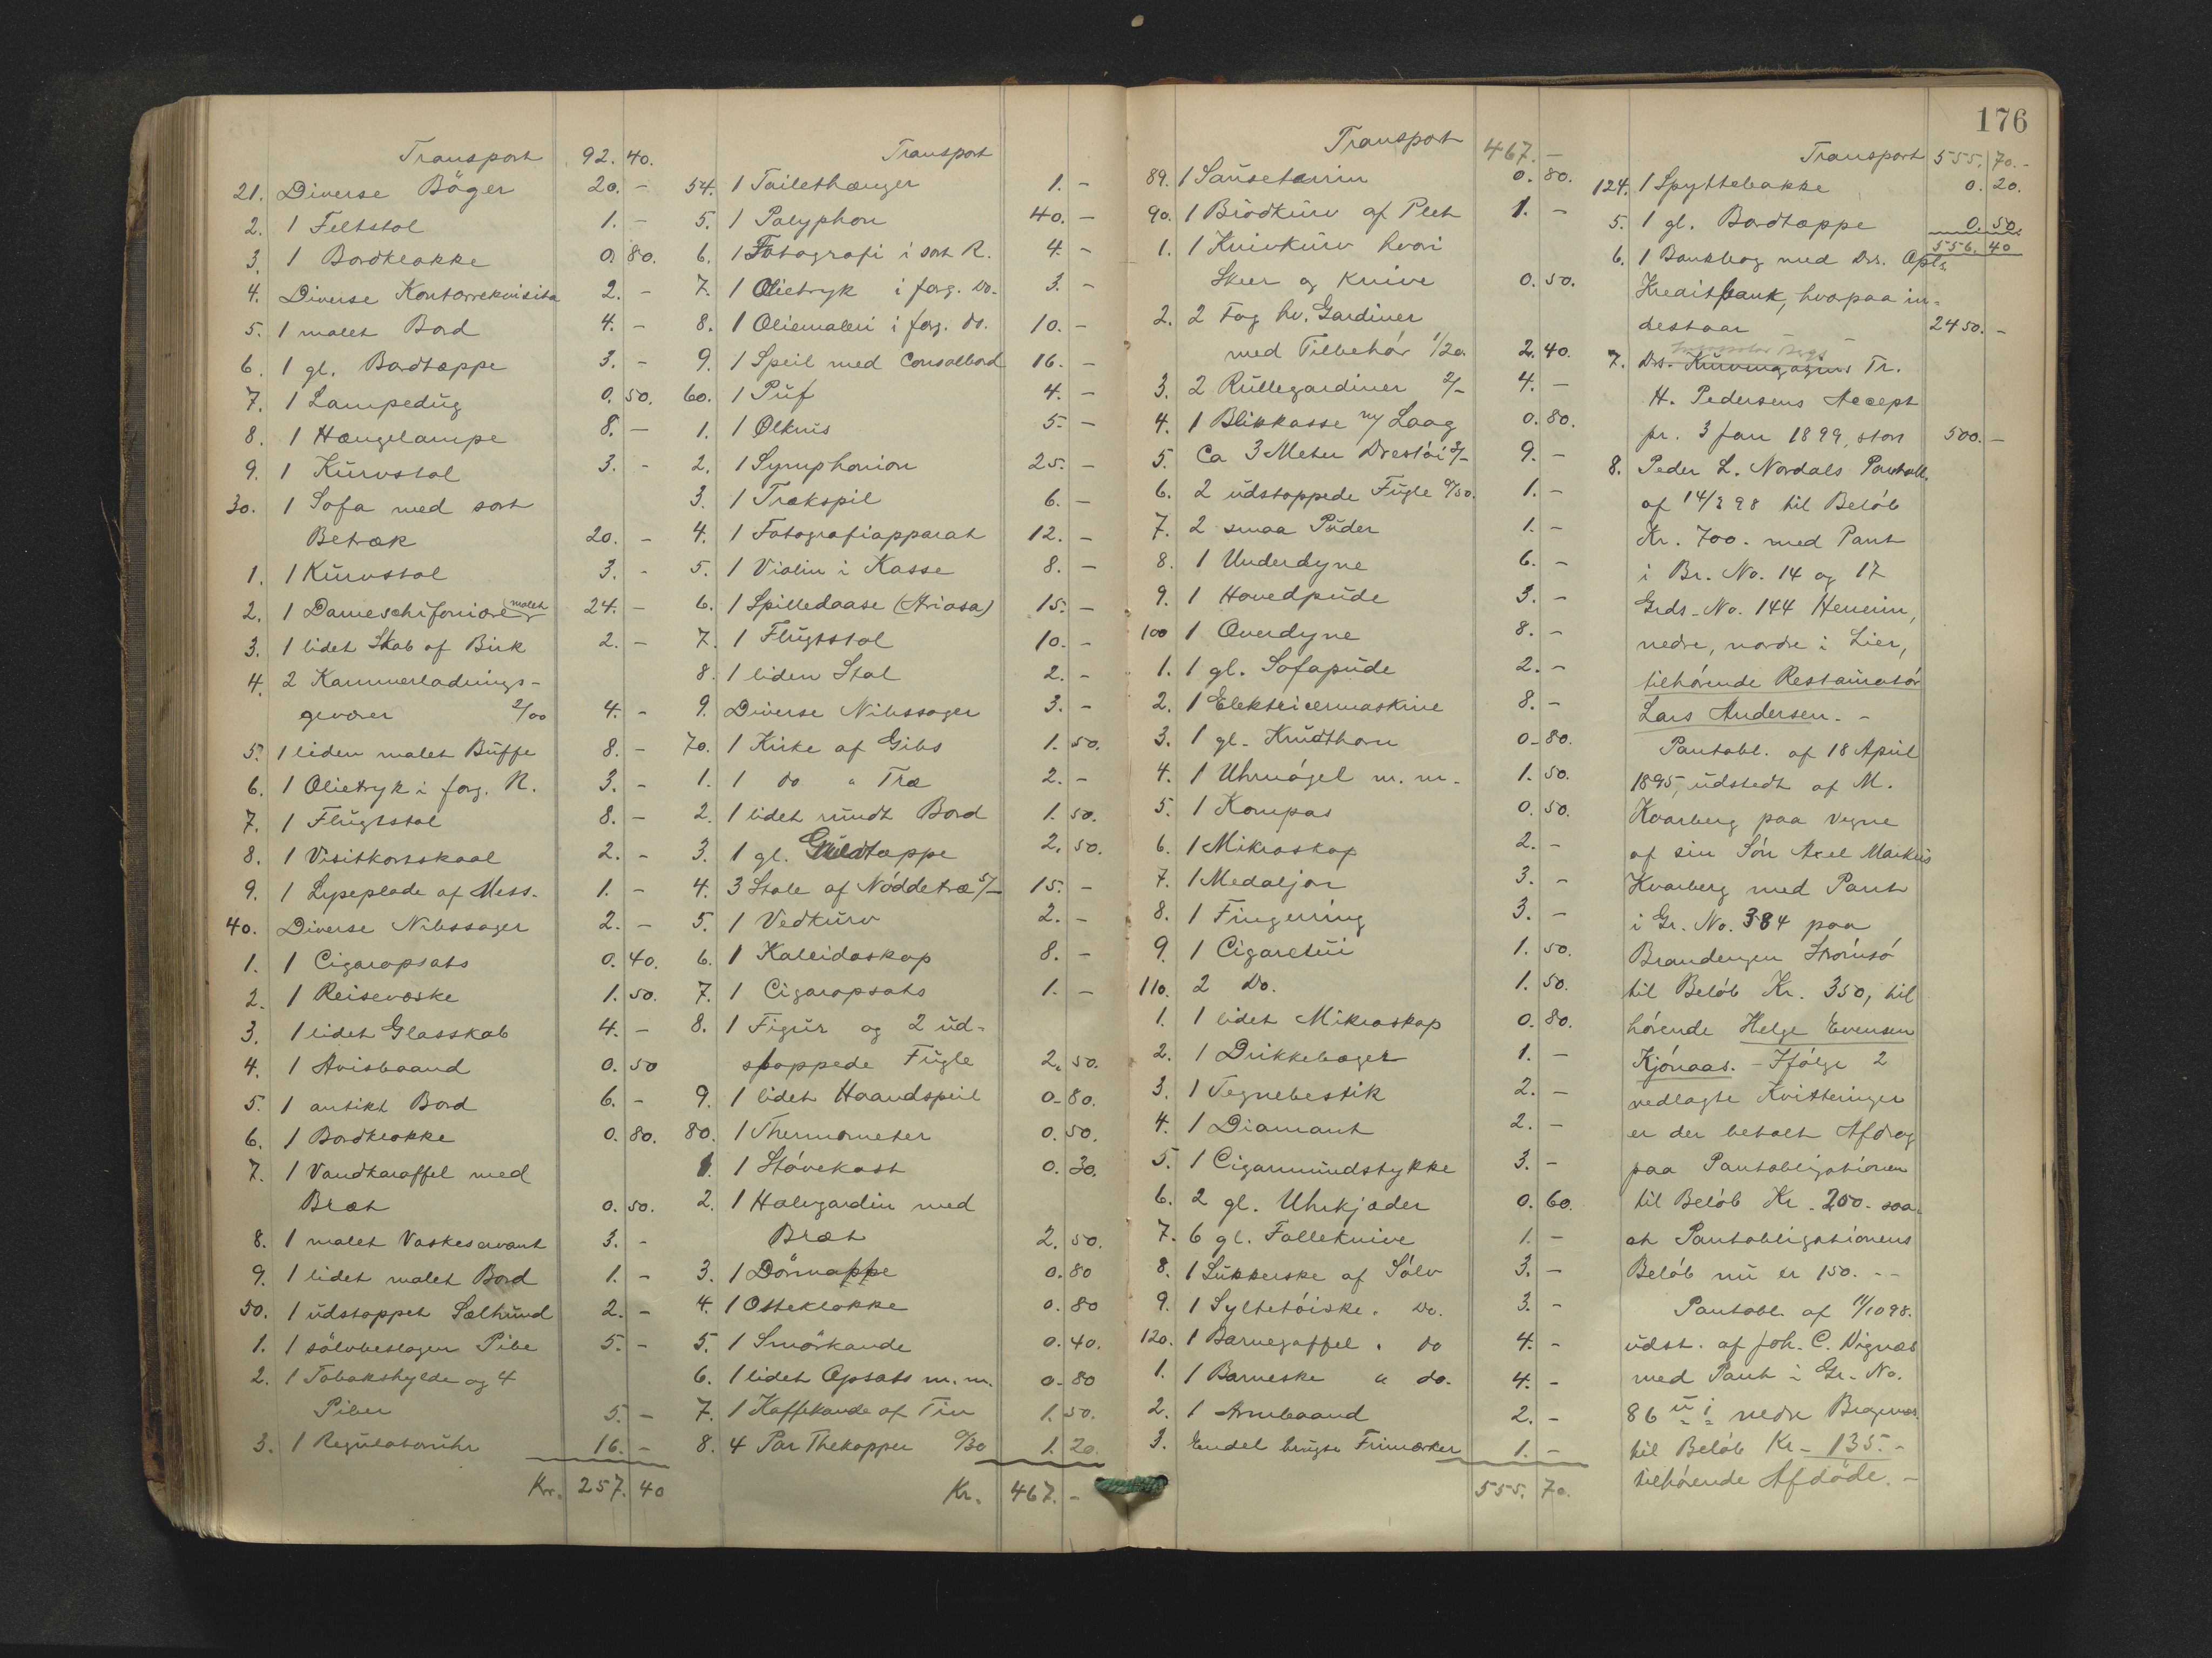 Transport 92. 40.
21. Diverse Böger 20. -
2. 1 Feltstol 1. -
3. 1 Bordklokke 0. 80.
4. Diverse Kontorrekvisita 2. -
5. 1 malet Bord 4. -
6. 1 gl. Bordtæppe 3. -
7. 1 Lampedug 0. 50.
8. 1 Hængelampe 8. -
9. 1 Kurvstol 3. -
30. 1 Sofa med sort
Betræk 20. -
1. 1 Kurvstol 3. -
2. 1 Dameschifoniere malet 24. -
3. 1 lidet Skab af Birk 2. -
4. 2 Kammerladnings-
geværer 2/00 4. -
5. 1 liden malet Buffe 8. -
6. 1 Olietryk i forg. R. 3. -
7. 1 Flugtstol 8. -
8. 1 Visitkortskaal 2. -
9. 1 Lyseplade af Mess. 1. -
40. Diverse Nibssager 2. -
1. 1 Cigaropsats 0. 40.
2. 1 Reisevæske 1. 50.
3. 1 lidet Glasskab 4. -
4. 1 Avisbaand 0. 50
5. 1 antikt Bord 6. -
6. 1 Bordklokke 0. 80.
7. 1 Vandkaraffel med
Bræt 0. 50.
8. 1 malet Vaskeservant 3. -
9. 1 lidet malet Bord 1. -
50. 1 udstoppet Sælhund 2. -
1. 1 sölvbeslagen Pibe 5. -
2. 1 Tobakshylde og 4
Piber 5. -
3. 1 Regulatoruhr 16. -
Kr. 257. 40
Transport
54. 1 Toilethænger 1. -
5. 1 Polyphon 40. -
6. 1 Fotografi i sort R. 4. -
7. 1 Olietryk i forg. Do. 3. -
8. 1 Oliemaleri i forg. do. 10. -
9. 1 Speil med Consolbord 16. -
60. 1 Puf 4. -
1. 1 Ølkrus 5. -
2. 1 Symphonion 25. -
3. 1 Trækspil 6. -
4. 1 Fotografiapparat 12. -
5. 1 Violin i Kasse 8. -
6. 1 Spilledaase (Ariosa) 15. -
7. 1 Flugtstol 10. -
8. 1 liden Stol 2. -
9. Diverse Nibssager 3. -
70. 1 Kirke af Gibs 1. 50.
1. 1 do " Træ 2. -
2. 1 lidet rundt Bord 1. 50.
3. 1 gl. Guldtæppe 2. 50.
4. 3 Stole af Nöddetræ 5/- 15. -
5. 1 Vedkurv 2. -
6. 1 Kaleidoskop 8. -
7. 1 Cigaropsats 1. -
8. 1 Figur og 2 ud-
stoppede Fugle 2. 50.
9. 1 lidet Haandspeil 0. 80.
80. 1 Thermometer 0. 50.
1. 1 Stövekost 0. 30.
2. 1 Halvgardin med
Bræt 2. 50.
3. 1 Dörmappe 0. 80
4. 1 Osteklokke 0. 80
5. 1 Smörkande 0. 40.
6. 1 lidet Opsats m. m. 0. 80
7. 1 Kaffekande af Tin 1. 50.
8. 4 Par Thekopper 0/30 1. 20.
Kr. 467. -
Transport 467. -
89. 1 Sauseterrin 0. 80.
90. 1 Brödkurv af Plet 1. -
1. 1 Knivkurv hvori
Skeer og Knive 0. 50.
2. 2 Fag hv. Gardiner
med Tilbehör 1/20 2. 40.
3. 2 Rullegardiner 2/- 4. -
4. 1 Blikkasse m/ Laag 0. 80.
5. Ca 3 Meter Drestöi 3/- 9. -
6. 2 udstoppede Fugle 0/50. 1. -
7. 2 smaa Puder 1. -
8. 1 Underdyne 6. -
9. 1 Hovedpude 3. -
100 1 Overdyne 8. -
1. 1 gl. Sofapude 2. -
2. 1 Elektricermaskine 8. -
3. 1 gl. Krudthorn 0. 80.
4. 1 Uhrnögel m. m. 1. 50.
5. 1 Kompas 0. 50.
6. 1 Mikroskop 2. -
7. 1 Medaljon 3. -
8. 1 Fingerring 3. -
9. 1 Cigaretui 1. 50.
110. 2 Do. 1. 50.
1. 1 lidet Mikroskop 0. 80.
2. 1 Drikkebæger 1. -
3. 1 Tegnebestik 2. -
4. 1 Diamant 2. -
5. 1 Cigarmundstykke 3. -
6. 2 gl. Uhrkjæder 0. 60.
7. 6 gl. Folleknive 1. -
8. 1 Sukkerske af Sölv 3. -
9. 1 Syltetöiske " Do. 3. -
120. 1 Barnegaffel " do 4. -
1. 1 Barneske " do. 4. -
2. 1 Armbaand 2. -
3. Endel brugte Frimærker 1. -
555. 70.
176
Transport 555. 70. -
124. 1 Spyttebakke 0. 20.
5. 1 gl. Bordtæppe 0. 50.
556. 40
6. 1 Bankbog med Drs. Opl.
Kreditbank, hvorpaa in-
destaar 2450. -
7. Drs. Kurvmagasins Tr.
H. Pedersens Accept
pr. 3 Jan 1899, stor 500. -
8. Peder L. Nordals Pantobl.
af 14/3 98 til Belöb
Kr. 700. med Pant
i Br. No. 14 og 17
Grds-No. 144 Hennum,
nedre, nordre i Lier,
tilhörende Restauratör
Lars Andersen. -
Pantobl. af 18 April
1895, udstedt af M.
Kvarberg paa Vegne
af sin Sön Axel Markus
Kvarberg med Pant
i Gr. No. 384 paa
Brandengen Strömsö
til Belöb Kr. 350, til
hörende Helge Evensen
Kjönaas. - Ifölge 2
vedlagte Kvitteringer
er der betalt Afdrag
paa Pantobligationen
til Belöb Kr. 200. saa
at Pantobligationens
Belöb nu er 150. --
Pantobl. af 11/10 98.
udst. af Joh. C. Vignæs
med Pant i Gr. No.
86 u i nedre Bragernæs
til Belöb Kr. 135. -
tilhörende Afdöde. -